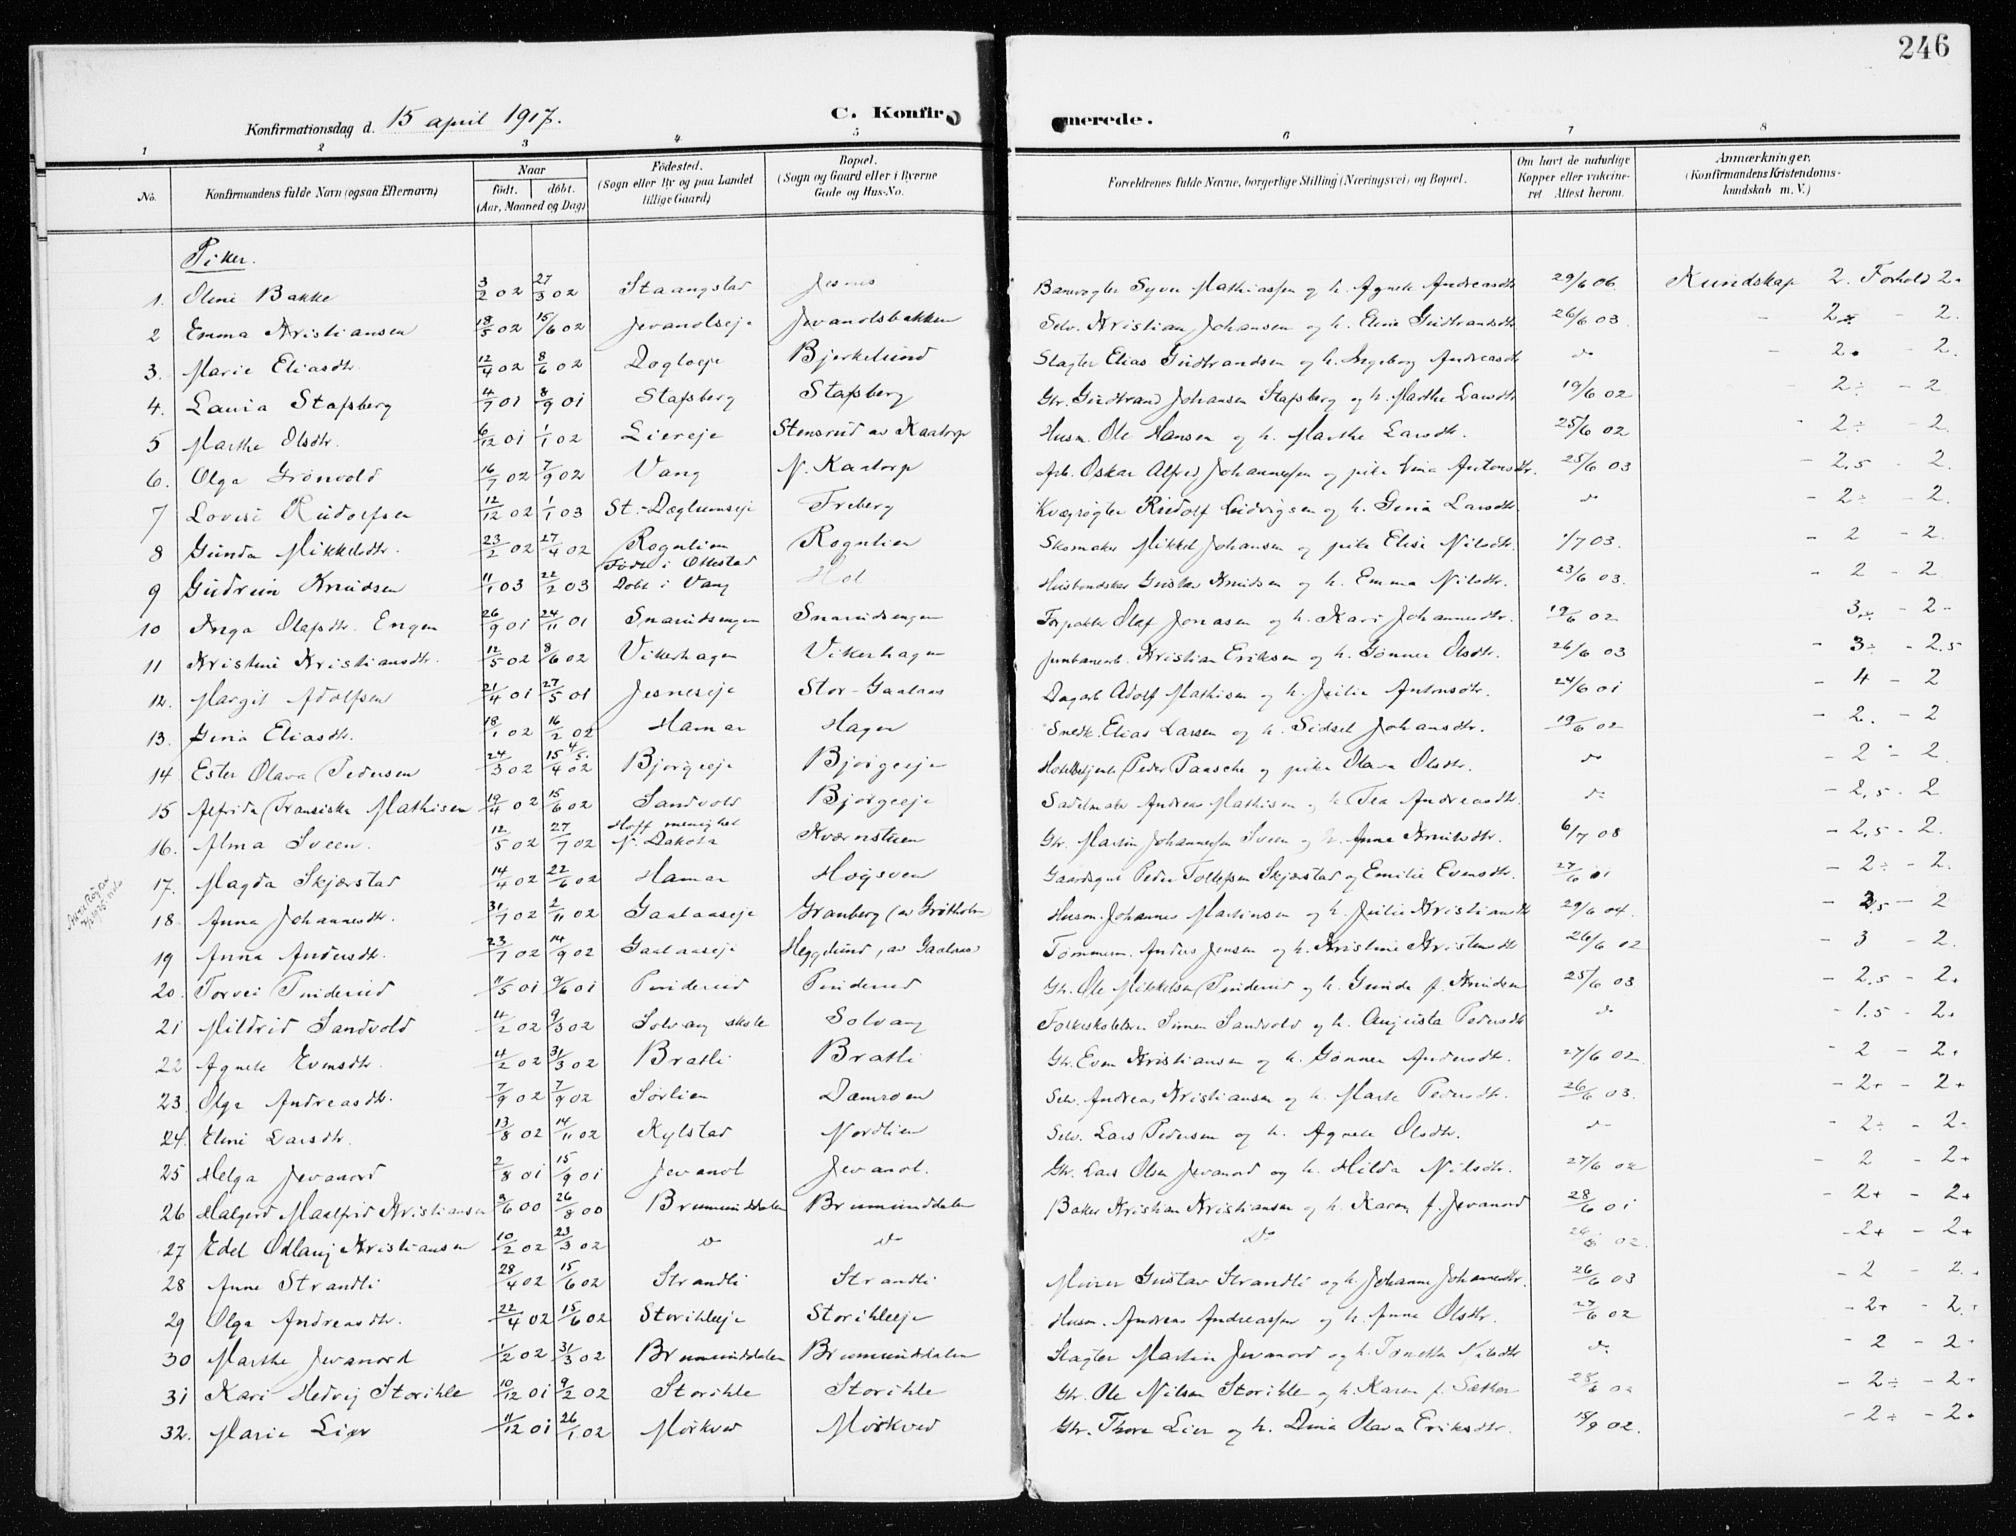 246
Konfirmationsdag d. 15 april 1917. C. Konfirmerede.
1 2 3 4 5 6 7 8
No. Konfirmandens fulde Navn (ogsaa Efternavn) Naar født. døbt. (Aar, Maaned og Dag) Fødested. (Sogn eller By og paa Landet tillige Gaard) Bopæl. (Sogn og Gaard eller i Byerne Gade og Hus-No. Forældrenes fulde Navne, borgerlige Stilling (Næringsvei) og Bopæl. Om havt de naturlige Kopper eller vakcineret Attest herom. Anmærkninger. (Konfirmandens Kristendomskundskab m. V.)
Piker.
1. Oleni Bakke 3/2 02 27/3 02 Staangstad Jesnes Banevogter Syver Mathiassen og h. Agnete Andreasdtr 29/6 06. Kundskap 2. Forhold 2+
2 Emma Kristiansen 18/5 02 15/6 02 Jevanolseje Jevanolsbakken Selv. Kristian Johansen og h. Eline Gudbrandsdtr. 26/6 03. - 2 - 2.
3. Marie Eliasdtr. 12/4 02 8/6 02 Dagloeje Bjerkelund Slagter Elias Gudbrandsen og h. Ingeborg Andreasdtr do - 2+ - 2.
4. Laura Stafsberg 4/7 01 8/9 01 Stafsberg Stafsberg Gbr. Gudbrand Johansen Stafsberg og h. Marthe Larsdtr 19/6 02 - 2÷ - 2
5 Marthe Olsdtr. 6/12 01 1/1 02 Liereje Stensrud av Kaatorp Husm. Ole Hansen og h. Marthe Larsdtr. 25/6 02 - 2÷ - 2.
6. Olga Grönvold 16/7 02 7/9 02 Vang N. Kaatorp Arb. Oskar Alfred Johannessen og pike Lina Antonsdtr. 25/6 03 - 2,5 - 2.
7 Lovise Rudolfsen 12/12 02 1/1 03 St.-Dæglumseje Freberg Kvægrögter Rudolf Ludvigsen og h. Gina Larsdtr. do - 2÷ - 2.
8 Gunda Mikkelsdtr. 23/2 02 27/4 02 Rognlien Rognlien Skomaker Mikkel Johansen og pike Elise Nilsdtr. 1/7 03. - 2 - 2.
9 Gudrun Knudsen 11/1 03 22/2 03 Födt i Ottestad Döbt i Vang Hol Husbondskar Gustav Knudsen og h. Emma Nilsdtr. 23/6 03. - 2 - 2
10 Inga Olafsdtr. Engen 26/9 01 24/11 01 Snarudsengen Snarudsengen Forpakter Olaf Jonasen og h. Kari Johannesdtr. 19/6 02 3÷ - 2-
11 Kristine Kristiansdtr. 12/5 02 8/6 02 Vikerhagen Vikerhagen Jernbanearb. Kristian Eriksen og h. Gönner Olsdtr. 26/6 03 - 3÷ - 2.5
12. Margit Adolfsen 21/4 01 27/5 01 Jesneseje Stor-Gaalaas Dagarb Adolf Mathisen og h. Julie Antonsdtr. 24/6 01 - 4 - 2
13. Gina Eliasdtr. 18/1 02 16/2 02 Hamar Hagen Snedk. Elias Larsen og h. Sidsel Johansdtr. 19/6 02 - 2. - 2
14 Ester Olava Pedersen 24/3 02 15/4 02 4/5. Bjørgeeje Bjørgeeje Hotelbetjent Peder Paasche og pike Olava Olsdtr. do - 2 - 2.
15 Alfrida Fransiska Mathisen 19/4 02 15/6 02 Sandvold Bjørgeeje Sadelmaker Andreas Mathisen og h. Tea Andreasdtr. do - 2,5 - 2
16. Alma Sveen. 12/5 02 27/7 02 Hoff menighet N. Dakota Kværnsteen Gbr. Martin Johannessen Sveen og h. Anne Knudsdtr. 6/7 08 - 2,5 - 2.
17. Magda Skjærstad 14/4 02 22/6 02 Hamar Hogsven Gaardeqne Peder Tollefsen Skjærstad og Emilie Evensdtr. 27/6 01 - 2÷ - 2.
18. Anna Johannesdtr. 31/7 02 2/11 02 Gaalaaseje Granberg (av Grötholm) Husm. Johannes Martinsen og h. Julie Kristiansdtr 29/6 04. - 2,5 - 2
19 Anna Andersdtr. 23/7 02 14/9 02 Gaalaaseje Heggelund, av Gaalaas Tömmerm. Anders Jensen og h. Kristine Kristensdtr 26/6 02 - 3 - 2.
20. Torvei Pinderud 11/5 01 9/6 01 Pinderud Pinderud Gbr. Ole Mikkelsen Pinderud og h. Gunda f. Knudsen 25/6 03 - 2,5 - 2+
21 Mildrid Sandvold 4/2 02 9/3 02 Solvang skole Solvang Folkeskolelærer Simen Sandvold og h. Augusta Pedersdtr do - 1.5 - 2+
22 Agnete Evensdtr. 4/2 02 31/3 02 Bratli Bratli Gbr. Even Kristiansen og h. Gönner Andersdtr. 27/6 02. - 2 - 2+
23. Olga Andreasdtr. 7/9 02 7/9 02 Sørlien Damroen Selv. Andreas Kristiansen og h. Marte Pedersdtr. 26/6 03. - 2+ - 2+
24. Eline Larsdtr. 13/8 02 14/11 02 Kylstad Nordlien Selv. Lars Pedersen og h. Agnete Olsdtr. do - 2÷ - 2-
25 Helga Jevanord 2/8 01 15/9 01 Jevanol Jevanol. Gbr. Lars Olsen Jevanord og h. Hilda Nilsdtr. 27/6 02 - 2 - 2+
26 Halgerd Maalfrid Kristiansen 9/6 00 26/8 00 Brumunddalen Brumunddalen Baker Kristian Kristiansen og h. Karen f. Jevanord 28/6 01 - 2+ - 2+
27 Edel Odlaug Kristiansen 10/2 02 23/3 02 do do Do 26/6 02. - 2+ - 2+
28 Anne Strandli 28/4 02 15/6 02 Strandli Strandli Murer Gustav Strandli og h. Johanne Johannesdtr. 26/6 03 - 2 - 2.
29 Olga Andreasdtr. 22/4 02 15/6 02 Storihleeje Storihleeje Husm. Andreas Andreassen og h. Anne Olsdtr. 27/6 02 - 2+ - 2.
30 Marthe Jevanord 1/2 02 31/3 02 Brumunddalen Brumunddalen Slagter Martin Jevanord og h. Tonetta Nilsdtr do - 2 - 2
31 Kari Hedvig Storihle 10/12 01 9/2 02 Storihle Storihle Gbr. Ole Nilsen Storihle og h. Karen f. Sæther 28/6 02 - 2÷ - 2+
32. Marie Lier 11/12 01 26/1 02 Mörkved Mörkved Gbr. Thore Lier og h. Dina Olava Eriksdtr. 18/9 02. - 2÷ - 2+